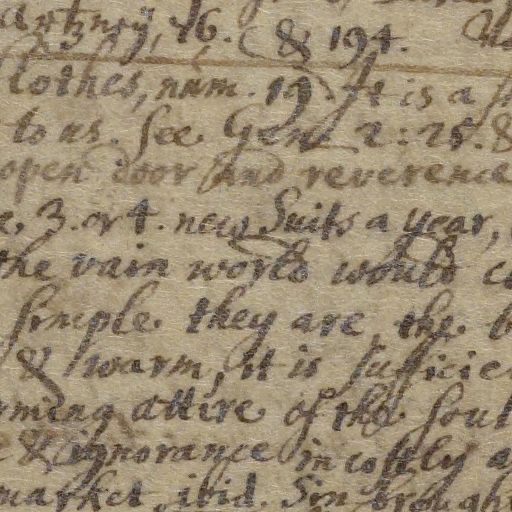 76. & 194.
lothes, num. 19. It is a
to us. See Gen. 2: 25. &
open door and reverence
e, 3. or 4. new Suits a year,
the vain world would
simple they are, the b
& warm, it is sufficie
rming attire of the soul
e & ignorance in costly a
market, ibid. Sin brought